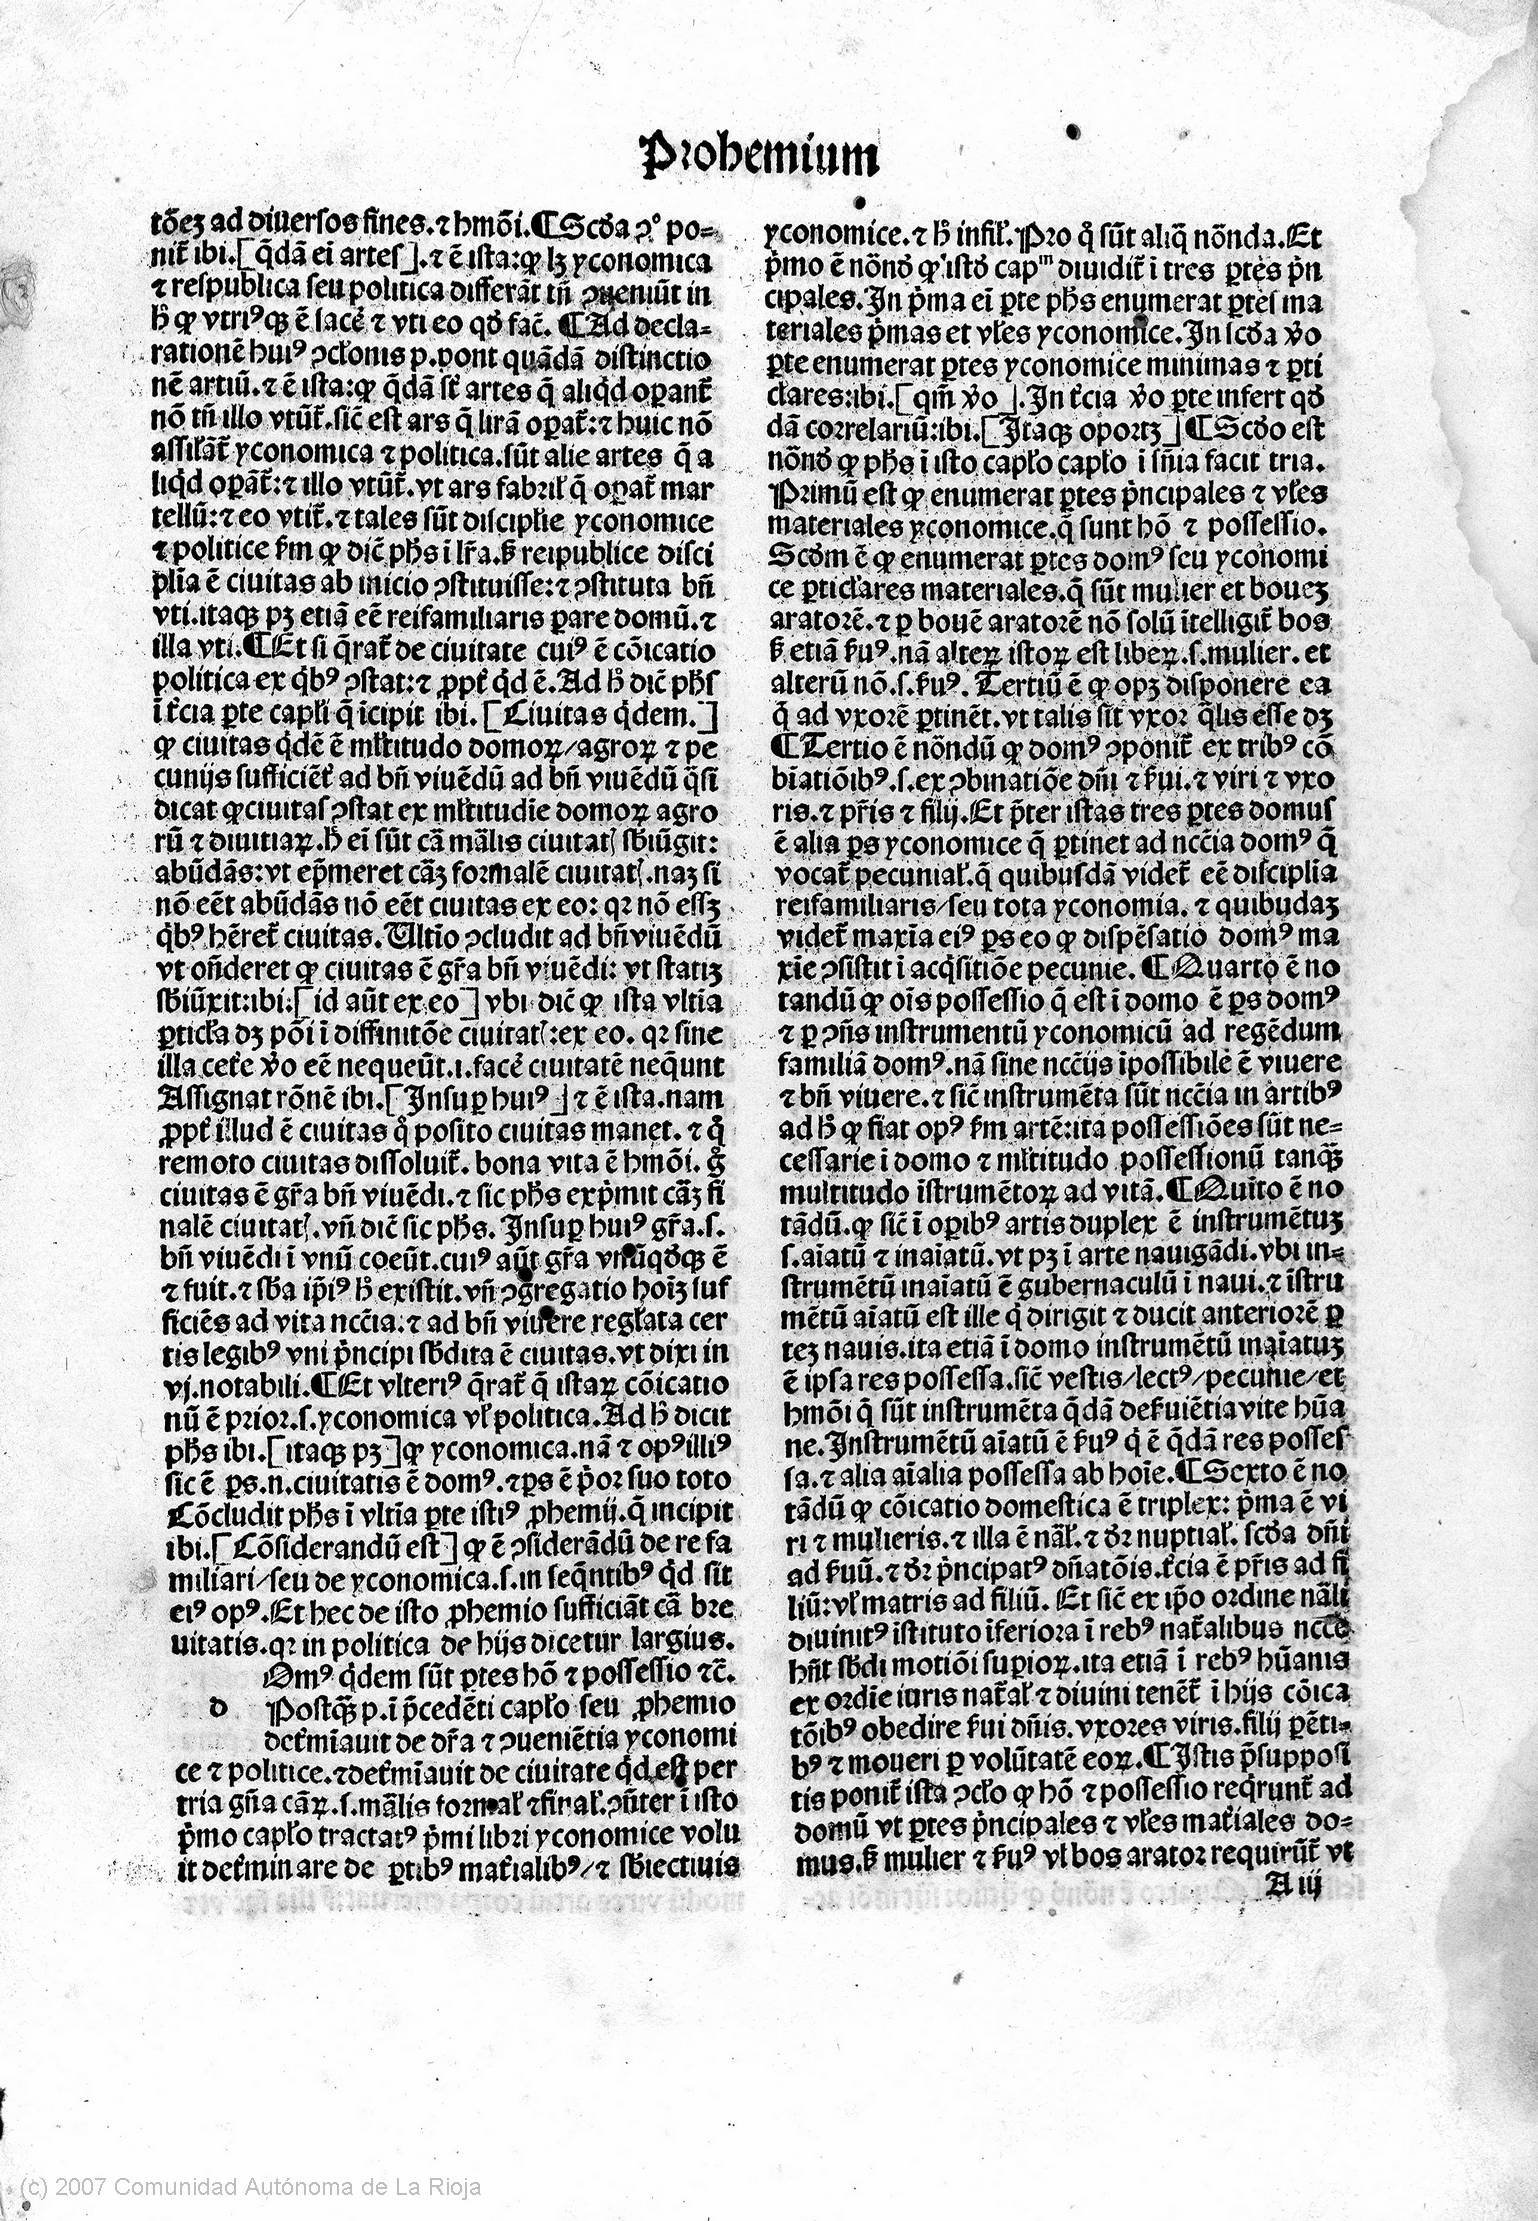 Prohemium
tōeꝫ ad diuersos fines.⁊ hmōi.¶Scd̄a ꝯᵒ po-
nit̄ ibi.[q̄dā ei artes].⁊ ē ista:ꝙ lꝫ yconomica
⁊ respublica seu politica differāt tn̄ ꝯueniūt in
h̄ ꝙ vtriꝰqꝫ ē facẽ ⁊ vti eo qd̄ fac̄. ¶Ad decla-
rationē huiꝰ ꝯcl̄onis p.pont quādā distinctio
nē artiū.⁊ ē ista:ꝙ q̄dā st̄ artes q̄ aliq̄d oꝑant̄
nō tn̄ illo vtūt̄.sic̄ est ars q̄ lirā oꝑat̄:⁊ huic nō
assil̄āt̄ yconomica ⁊ politica.sūt alie artes q̄ a
liq̄d oꝑāt̄:⁊ illo vtūt̄.vt ars fabril̄ q̄ oꝑat̄ mar
tellū:⁊ eo vtit̄.⁊ tales sūt discipl̄ie yconomice
⁊ politice ẜm ꝙ dic̄ ph̄s ī lr̄a.ẜ reipublice disci
plīa ē ciuitas ab inicio ꝯstituisse:⁊ ꝯstituta bn̄
vti.itaqꝫ pꝫ etiā eē reifamiliaris ꝑare domū.⁊
illa vti.¶Et si q̄rat̄ de ciuitate cuiꝰ ē cōicatio
politica ex q̄bꝰ ꝯstat:⁊ ꝓpt̄ q̄d ē.Ad h̄ dic̄ ph̄s
ī t̄cia ꝑte capl̄i q̄ īcipit ibi.[Ciuitas q̄dem.]
ꝙ ciuitas q̄dē ē ml̄titudo domoꝝ/agroꝝ ⁊ pe
cunijs sufficiēt̄ ad bn̄ viuēdū ad bn̄ viuēdū q̄si
dicat ꝙciuitas ꝯstat ex ml̄titudīe domoꝝ agro
rū ⁊ diuitiaꝝ.h̄ ei sūt cā māl̄is ciuitatꝭ sb̄iūgit:
abūdās:vt ep̄meret cāꝫ formalē ciuitatꝭ.naꝫ si
nō eēt abūdās nō eēt ciuitas ex eo: qꝛ nō essꝫ
q̄bꝰ hēret̄ ciuitas.Ultīo ꝯcludit ad bn̄viuēdū
vt on̄deret ꝙ ciuitas ē gr̄a bn̄ viuēdi: vt statiꝫ
sb̄iūxit:ibi.[id aūt ex eo] vbi dic̄ ꝙ ista vltīa
ꝑticl̄a dꝫ pōi ī diffinitōe ciuitatꝭ:ex eo. qꝛ sine
illa cet̄e v̄o eē nequeūt.i.facẽ ciuitatē neq̄unt
Assignat rōnē ibi.[Insuꝑ huiꝰ] ⁊ ē ista.nam
ꝓpt̄ illud ē ciuitas qͦ posito ciuitas manet. ⁊ qͦ
remoto ciuitas dissoluit̄. bona vita ē hmōi. gͦ
ciuitas ē gr̄a bn̄ viuēdi.⁊ sic ph̄s exp̄mit cāꝫ fi
nalē ciuitatꝭ.vn̄ dic̄ sic ph̄s. Insuꝑ huiꝰ gr̄a.s.
bn̄ viuēdi ī vnū coeūt.cuiꝰ aūt gr̄a vnūqd̄qꝫ ē
⁊ fuit.⁊ sb̄a ip̄iꝰ h̄ existit.vn̄ ꝯgregatio hoīꝫ suf
ficiēs ad vita ncc̄ia.⁊ ad bn̄ viuere regl̄ata cer
tis legibꝰ vni p̄ncipi sb̄dita ē ciuitas.vt dixi in
vj.notabili.¶Et vlteriꝰ q̄rat̄ q̄ istaꝝ cōicatio
nū ē prior.s.yconomica vl̄ politica.Ad h̄ dicit
ph̄s ibi.[itaqꝫ pꝫ]ꝙ yconomica.nā ⁊ opꝰilliꝰ
sic ē ꝑs.n.ciuitatis ē domꝰ.⁊ꝑs ē p̄or suo toto
Cōcludit ph̄s ī vltīa ꝑte istiꝰ ꝓhemij.q̄ incipit
ibi.[Cōsiderandū est] ꝙ ē ꝯsiderādū de re fa
miliari/seu de yconomica.s.in seq̄ntibꝰ q̄d sit
eiꝰ opꝰ.Et hec de isto ꝓhemio sufficiāt cā bre
uitatis.qꝛ in politica de hijs dicetur largius.
Omꝰ q̄dem sūt ꝑtes hō ⁊ possessio ⁊c̄.
d Postqꝫ p.ī p̄cedēti capl̄o seu ꝓhemio
det̄mīauit de dr̄a ⁊ ꝯueniētia yconomi
ce ⁊ politice.⁊det̄mīauit de ciuitate q̄d est per
tria gn̄a cāꝝ.s.māl̄is formal̄ ⁊final̄.ꝯn̄ter ī isto
p̄mo capl̄o tractatꝰ p̄mi libri yconomice volu
it det̄minare de ꝑtibꝰ mat̄ialibꝰ/⁊ sb̄iectiuis
yconomice.⁊ h̄ infil̄.Pro qͦ sūt aliq̄ nōnda.Et
p̄mo ē nōnd̄ ꝙ istd̄ capᵐ diuidit̄ ī tres ꝑtes p̄n
cipales.In p̄ma ei ꝑte ph̄s enumerat ꝑtes ma
teriales p̄mas et vl̄es yconomice.In scd̄a v̄o
ꝑte enumerat ꝑtes yconomice minimas ⁊ ꝑti
cl̄ares:ibi.[qm̄ v̄o ].In t̄cia v̄o ꝑte infert qd̄
dā correlariū:ibi.[Itaqꝫ oportꝫ]¶Scd̄o est
nōnd̄ ꝙ ph̄s ī isto capl̄o capl̄o ī sn̄ia facit tria.
Primū est ꝙ enumerat ꝑtes p̄ncipales ⁊ vl̄es
materiales yconomice.q̄ sunt hō ⁊ possessio.
Scd̄m ē ꝙ enumerat ꝑtes domꝰ seu yconomi
ce ꝑticl̄ares materiales.q̄ sūt mulier et boueꝫ
aratorē.⁊ ꝑ bouē aratorē nō solū ītelligit̄ bos
ẜ etiā ẜuꝰ.nā alteꝝ istoꝝ est libeꝝ.s.mulier. et
alterū nō.s.ẜuꝰ. Tertiū ē ꝙ opꝫ disponere ea
q̄ ad vxorē ꝑtinēt.vt talis sit vxor q̄lis esse dꝫ
¶Tertio ē nōndū ꝙ domꝰ ꝯponit̄ ex tribꝰ cō
bīatiōibꝰ.s.ex ꝯbinatiōe dn̄i ⁊ ẜui.⁊ viri ⁊ vxo
ris.⁊ pr̄is ⁊ filij.Et p̄ter istas tres ꝑtes domus
ē alia ꝑs yconomice q̄ ꝑtinet ad ncc̄ia domꝰ q̄
vocat̄ pecunial̄.q̄ quibusdā videt̄ eē discipl̄ia
reifamiliaris/seu tota yconomia.⁊ quibudaꝫ
videt̄ maxīa eiꝰ ꝑs eo ꝙ dispēsatio domꝰ ma
xīe ꝯsistit ī acq̄sitiōe pecunie. ¶Quarto ē no
tandū ꝙ oīs possessio q̄ est ī domo ē ꝑs domꝰ
⁊ ꝑ ꝯn̄s instrumentū yconomicū ad regēdum
familiā domꝰ.nā sine ncc̄ijs īpossibile ē viuere
⁊ bn̄ viuere.⁊ sic̄ instrumēta sūt ncc̄ia in artibꝰ
ad h̄ ꝙ fiat opꝰ ẜm artē:ita possessiōes sūt ne-
cessarie ī domo ⁊ ml̄titudo possessionū tanqꝫ
multitudo īstrumētoꝝ ad vitā.¶Quīto ē no
tādū.ꝙ sic̄ ī oꝑibꝰ artis duplex ē instrumētuꝫ
s.aīatū ⁊ inaīatū.vt pꝫ ī arte nauigādi.vbi in-
strumētū inaīatū ē gubernaculū ī naui.⁊ īstru
mētū aīatū est ille q̄ dirigit ⁊ ducit anteriorē ꝑ
teꝫ nauis.ita etiā ī domo instrumētū inaīatuꝫ
ē ipsa res possessa.sic̄ vestis/lectꝰ/pecunie/et
hmōi q̄ sūt instrumēta q̄dā deẜuiētia vite hūa
ne.Instrumētū aīatū ē ẜuꝰ q̄ ē q̄dā res posses
sa.⁊ alia aīalia possessa ab hoīe.¶Sexto ē no
tādū ꝙ cōicatio domestica ē triplex: p̄ma ē vi
ri ⁊ mulieris.⁊ illa ē nāl̄.⁊ dr̄ nuptial̄. scd̄a dn̄i
ad ẜuū.⁊ dr̄ p̄ncipatꝰ dn̄atōis.t̄cia ē pr̄is ad fi
liū:vl̄ matris ad filiū. Et sic̄ ex ip̄o ordine nāl̄i
diuinitꝰ īstituto īferiora ī rebꝰ nat̄alibus ncc̄e
hn̄t sb̄di motiōi suꝑioꝝ.ita etiā ī rebꝰ hūanis
ex ordīe iuris nat̄al̄ ⁊ diuini tenēt̄ ī hijs cōica
tōibꝰ obedire ẜui dn̄is.vxores viris.filij pēti-
bꝰ ⁊ moueri ꝑ volūtatē eoꝝ.¶Istis p̄supposi
tis ponit̄ ista ꝯcl̄o ꝙ hō ⁊ possessio reqrunt̄ ad
domū vt ꝑtes p̄ncipales ⁊ vl̄es mat̄iales do-
mus.ẜ mulier ⁊ ẜuꝰ vl̄ bos arator requirūt̄ vt
A iij
(c) 2007 Comunidad Autónoma de La Rioja